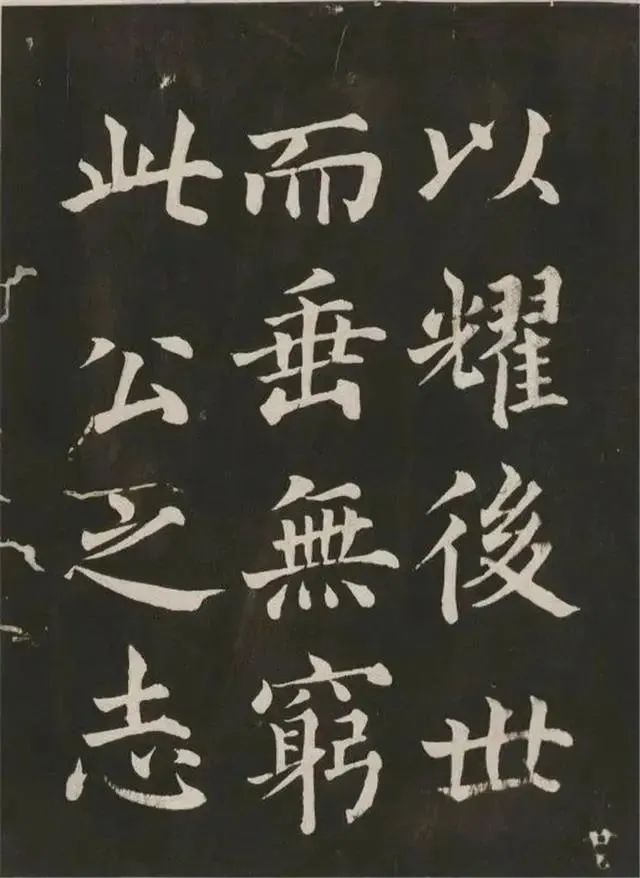 以耀後世
而垂無窮
此公之志